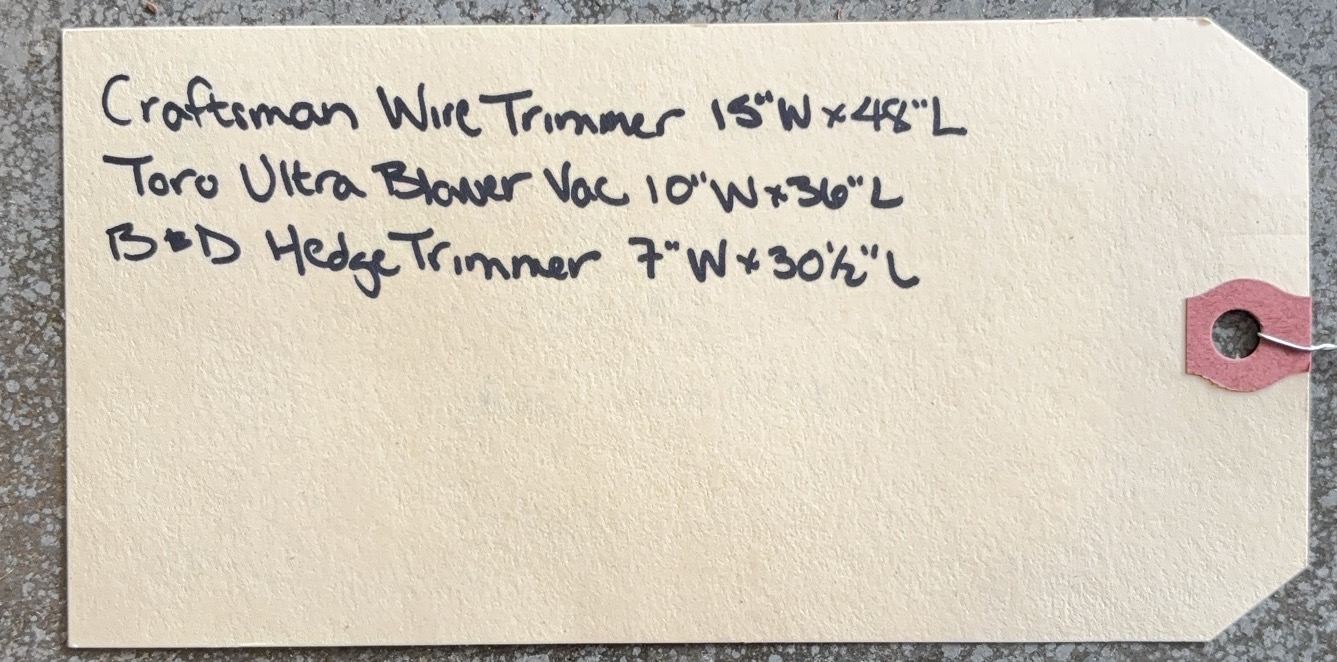 Craftsman Wire Trimmer 15"W x 48"L
Toro Ultra Blower Vac 10"W x 36"L
B&D Hedge Trimmer 7"W x 30½"L